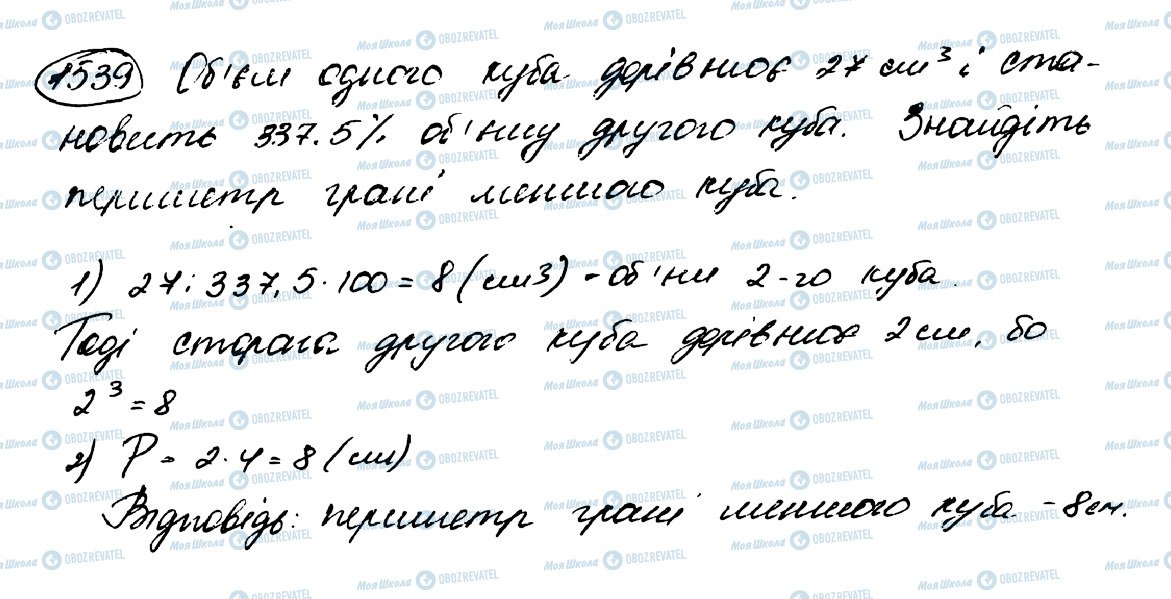 1539 Об'єм одного куба дорівнює 27 см³ і ста-
новить 337.5% об'єму другого куба. Знайдіть
периметр грані меншого куба.
1) 27 : 337,5 · 100 = 8 (см3) - об'єм 2-го куба.
Тоді сторона другого куба дорівнює 2 см, бо
2³ = 8
2) P = 2 · 4 = 8 (см)
Відповідь: периметр грані меншого куба - 8 см.
Моя Школа OBOZREVATEL